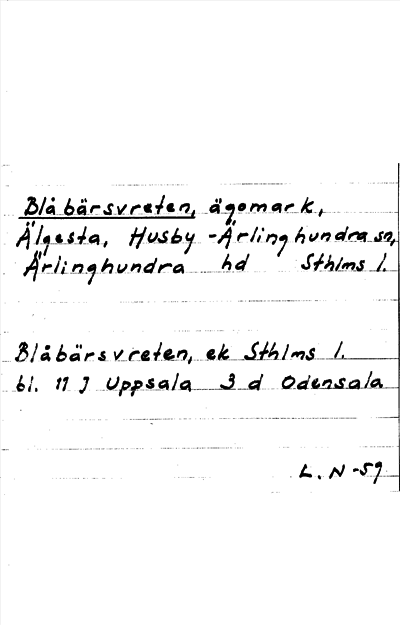 Blåbärsvreten, ägomark,
Älgesta, Husby-Ärlinghundra sn,
Ärlinghundra hd Sthlms l.
Blåbärsvreten, ek Sthlms l.
bl. 11 J Uppsala 3 d Odensala
L. N-59